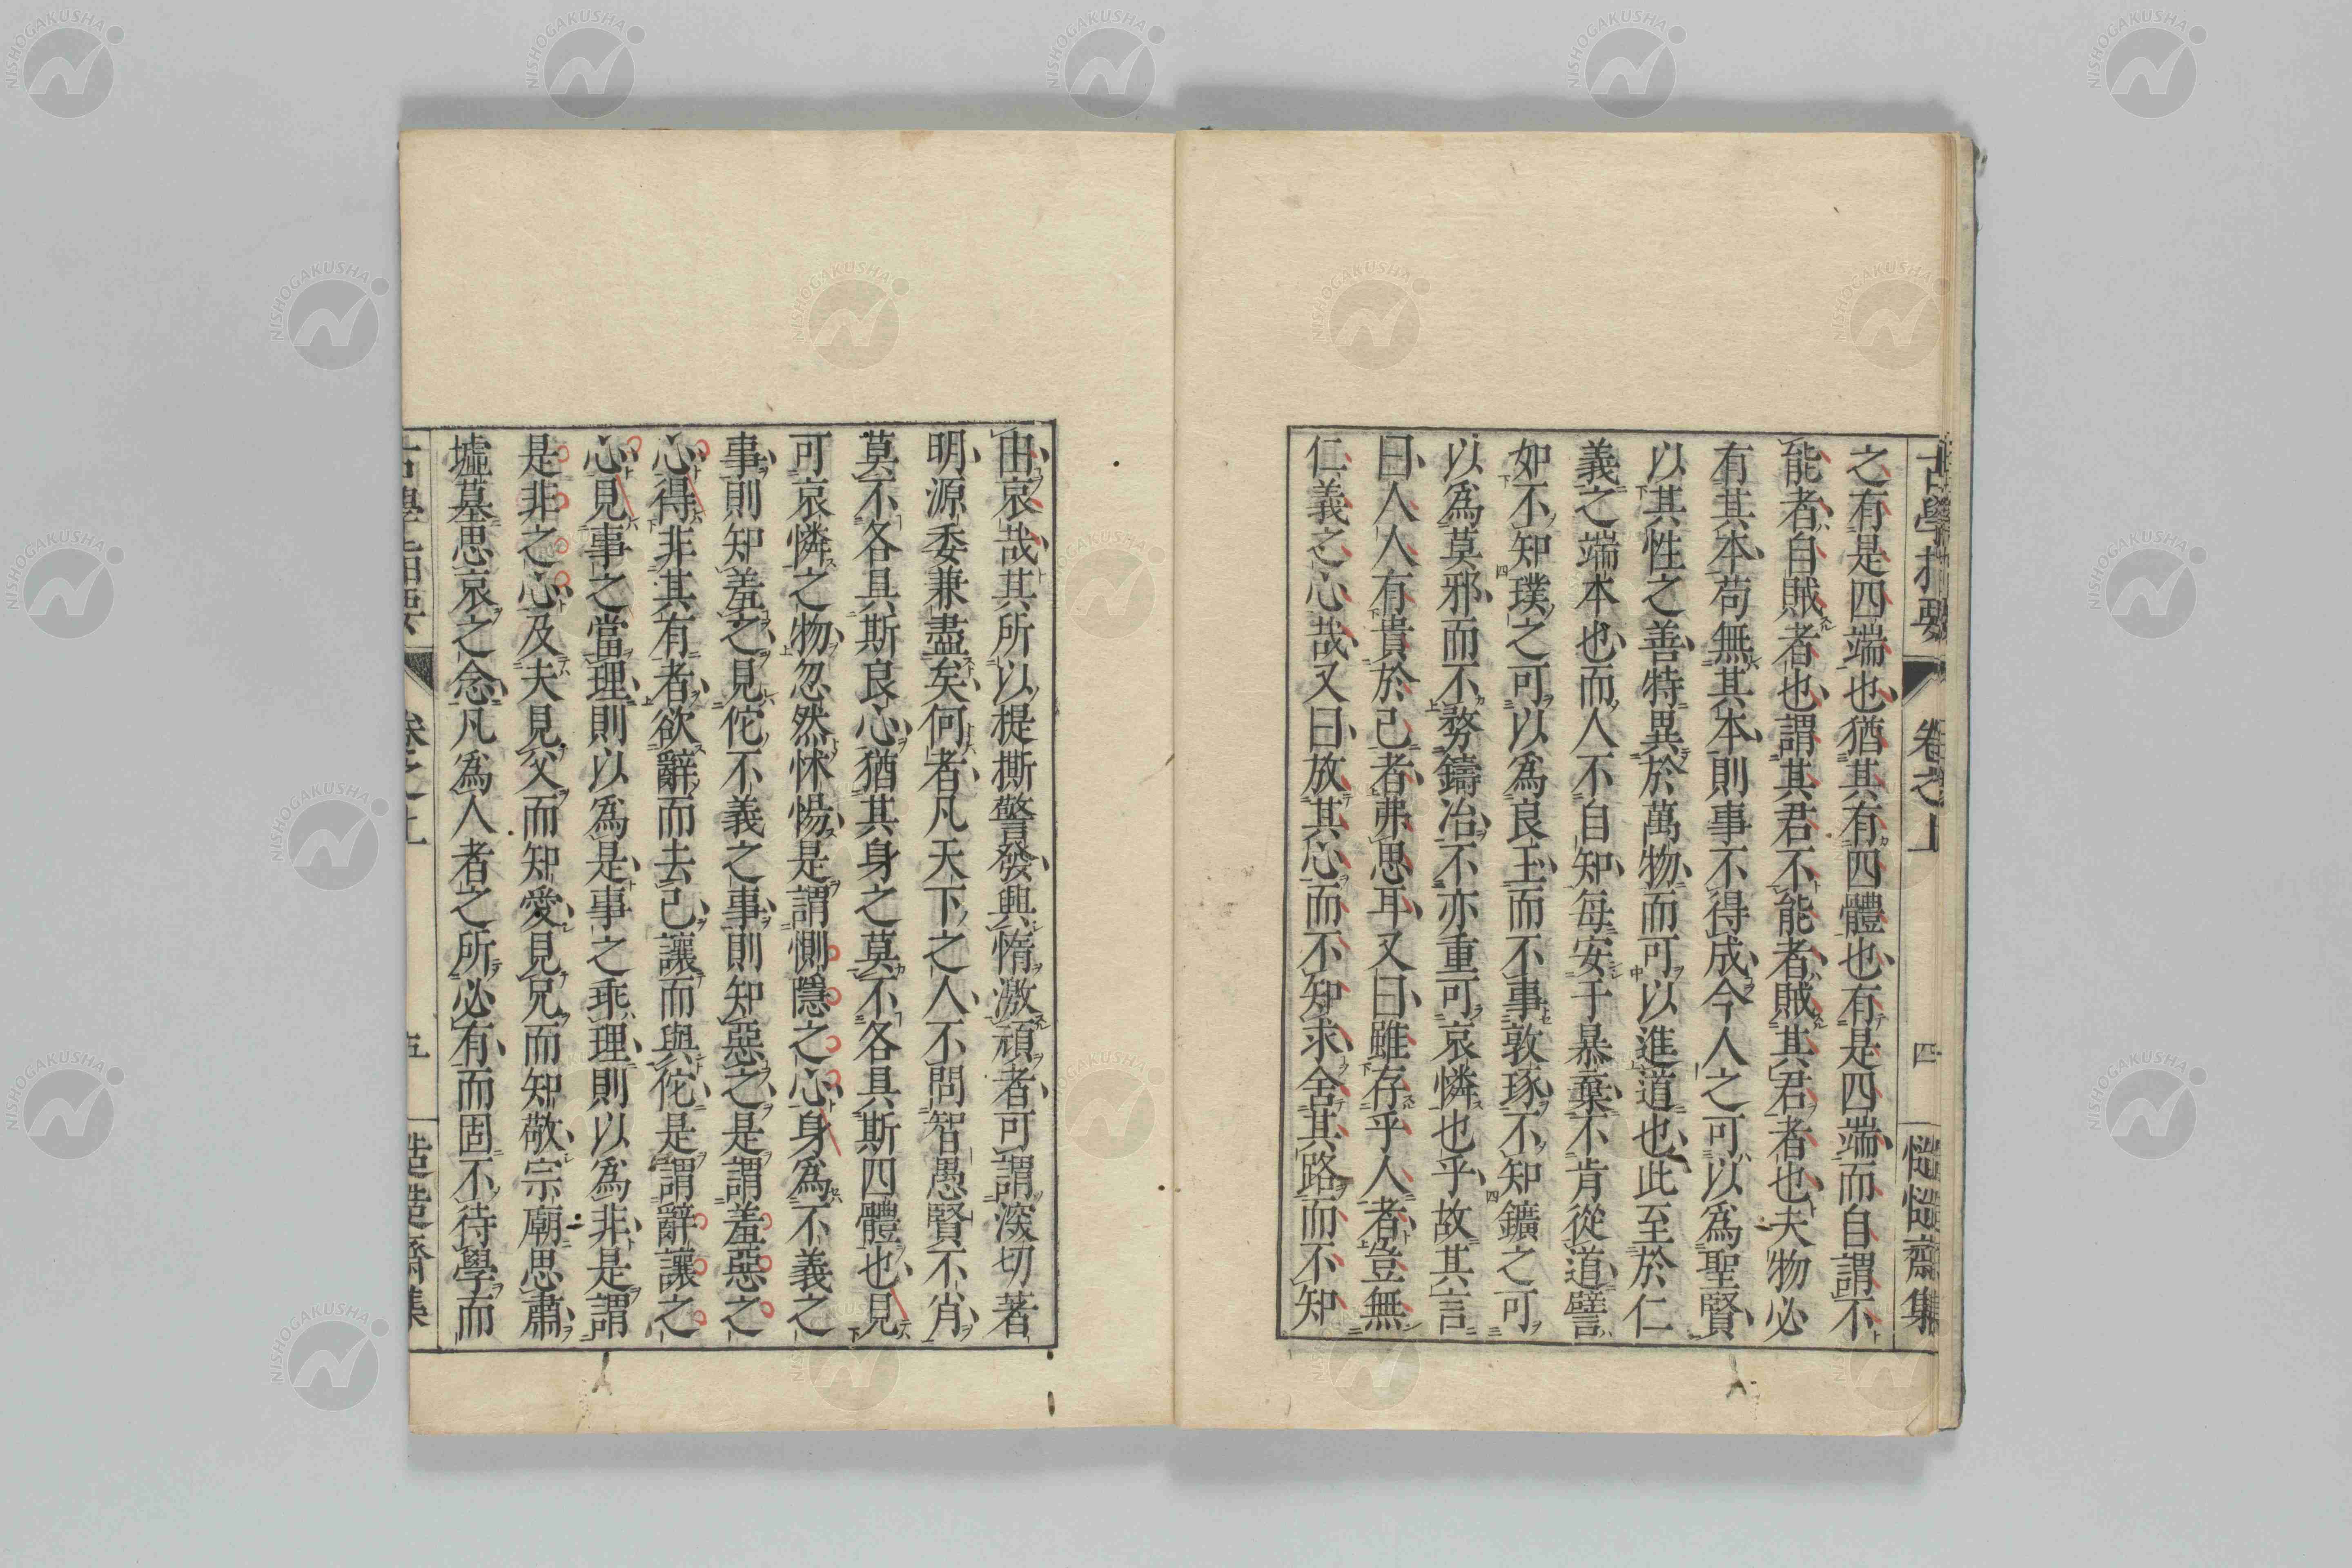 古學指要 卷之上 四 慥慥齋集
之有是四端也猶其有四體也有是四端而自謂不
能者自賊者也謂其君不能者賊其君者也夫物必
有其本苟無其本則事不得成今人之可以爲聖賢
以其性之善特異於萬物而可以進道也此至於仁
義之端本也而人不自知每安于暴棄不肯從道譬
如不知璞之可以爲良玉而不事敦琢不知鑛之可
以爲莫邪而不務鑄冶不亦重可哀憐也乎故其言
曰人人有貴於己者弗思耳又曰雖存乎人者豈無
仁義之心哉又曰放其心而不知求舍其路而不知
由哀哉其所以提撕警發興惰激頑者可謂深切著
明源委兼盡矣何者凡天下之人不問智愚賢不肖
莫不各具斯良心猶其身之莫不各具斯四體也見
可哀憐之物忽然怵惕是謂惻隱之心身爲不義之
事則知羞之見佗不義之事則知惡之是謂羞惡之
心得非其有者欲辭而去己讓而與佗是謂辭讓之
心見事之當理則以爲是事之乖理則以爲非是謂
是非之心及夫見父而知愛見兄而知敬宗廟思肅
墟墓思哀之念凡爲人者之所必有而固不待學而
古學指要 卷之上 五 慥慥齋集
NISHOGAKUSHA